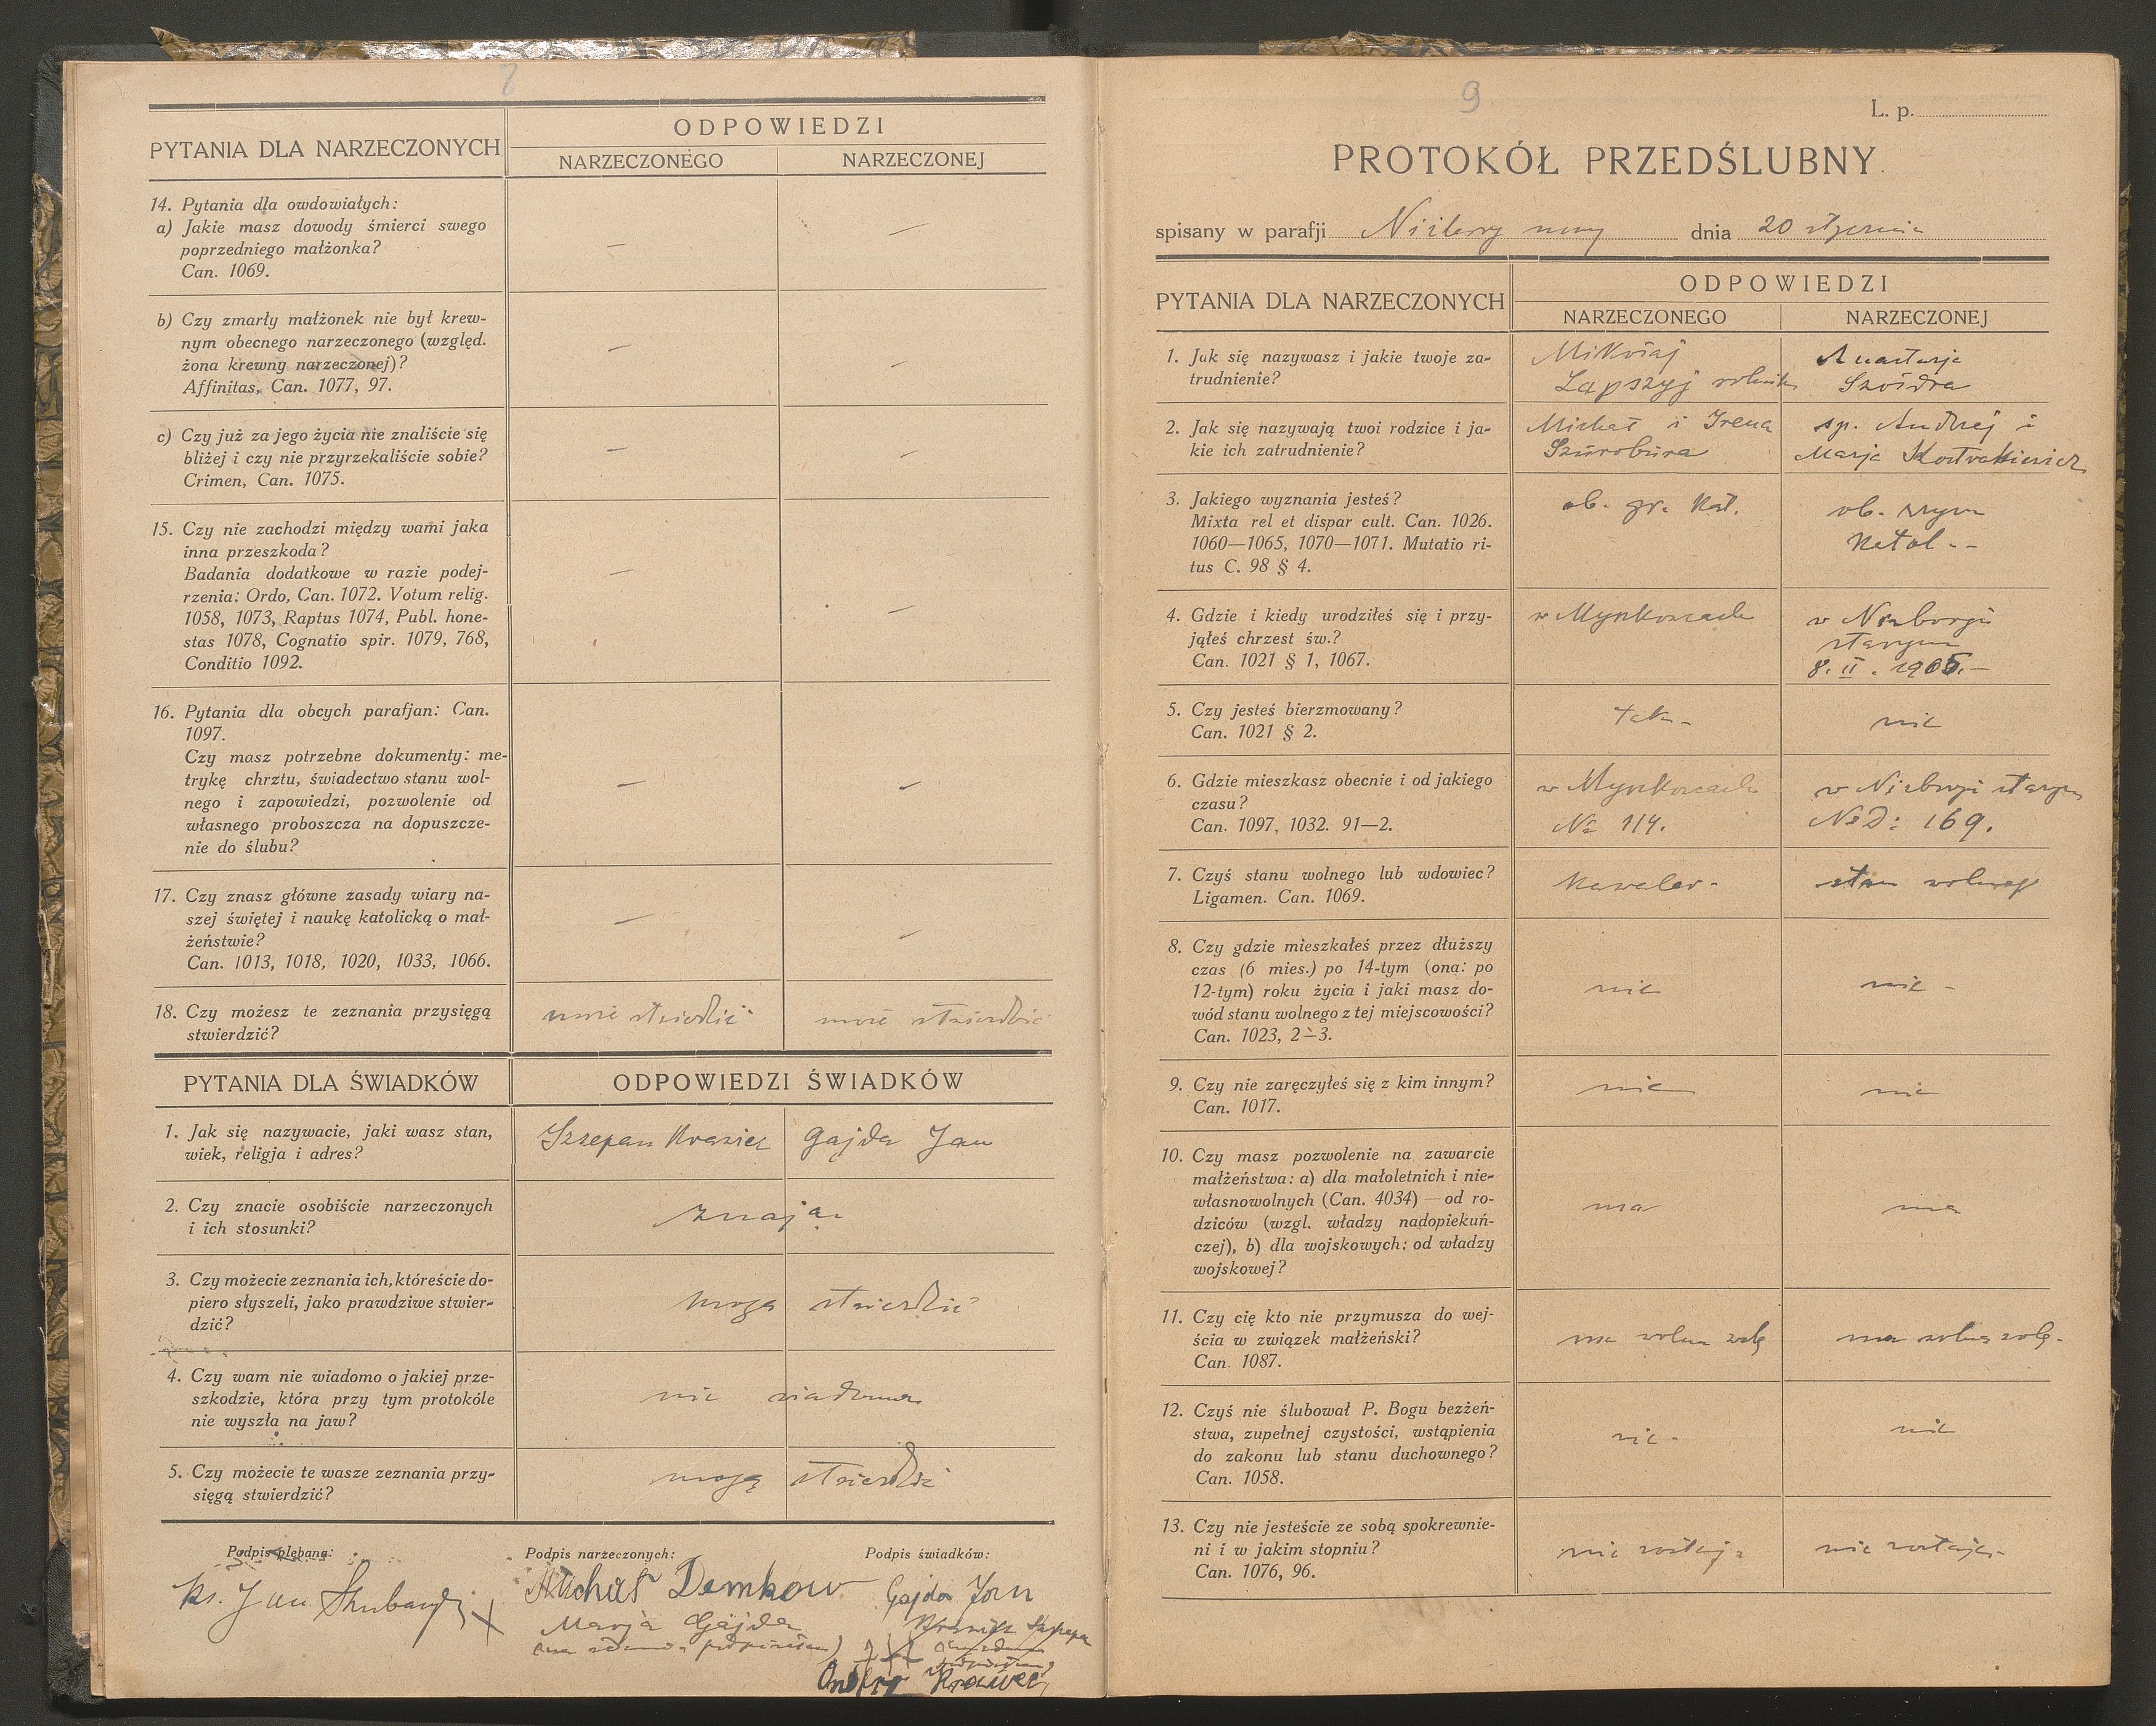 8
PYTANIA DLA NARZECZONYCH
ODPOWIEDZI
NARZECZONEGO
NARZECZONEJ
14. Pytania dla owdowiałych:
a) Jakie masz dowody śmierci swego
poprzedniego małżonka?
Can. 1069.
—
—
b) Czy zmarły małżonek nie był krew-
nym obecnego narzeczonego (względ.
żona krewny narzeczonej)?
Affinitas, Can. 1077, 97.
—
—
c) Czy już za jego życia nie znaliście się
bliżej i czy nie przyrzekaliście sobie?
Crimen, Can. 1075.
—
—
15. Czy nie zachodzi między wami jaka
inna przeszkoda?
Badania dodatkowe w razie podej-
rzenia: Ordo, Can. 1072. Votum relig.
1058, 1073, Raptus 1074, Publ. hone-
stas 1078, Cognatio spir. 1079, 768,
Conditio 1092.
—
—
16. Pytania dla obcych parafjan: Can.
1097.
Czy masz potrzebne dokumenty: me-
trykę chrztu, świadectwo stanu wol-
nego i zapowiedzi, pozwolenie od
własnego proboszcza na dopuszcze-
nie do ślubu?
—
—
17. Czy znasz główne zasady wiary na-
szej świętej i naukę katolicką o mał-
żeństwie?
Can. 1013, 1018, 1020, 1033, 1066.
—
—
18. Czy możesz te zeznania przysięgą
stwierdzić?
może stwierdzić
może stwierdzić
PYTANIA DLA ŚWIADKÓW
ODPOWIEDZI ŚWIADKÓW
1. Jak się nazywacie, jaki wasz stan,
wiek, religja i adres?
Szczepan
Gajda Jan
2. Czy znacie osobiście narzeczonych
i ich stosunki?
znają
3. Czy możecie zeznania ich, któreście do-
piero słyszeli, jako prawdziwe stwier-
dzić?
mogą stwierdzić
4. Czy wam nie wiadomo o jakiej prze-
szkodzie, która przy tym protokóle
nie wyszła na jaw?
nie wiadomo
5. Czy możecie te wasze zeznania przy-
sięgą stwierdzić?
mogą stwierdzić
Podpis plebana:
Podpis narzeczonych:
Podpis świadków:
ks. Jan
Michał Demkow
Marja Gajda
Gajda Jan
9
L. p.
PROTOKÓŁ PRZEDŚLUBNY
spisany w parafji Niżborg nowy dnia 20 stycznia
PYTANIA DLA NARZECZONYCH
ODPOWIEDZI
NARZECZONEGO
NARZECZONEJ
1. Jak się nazywasz i jakie twoje za-
trudnienie?
Mikołaj
Łapszyj rolnik
Anastazja
Szvidra
2. Jak się nazywają twoi rodzice i ja-
kie ich zatrudnienie?
Michał i Irena
Szurobura
sp. Andrzej i
Marja
3. Jakiego wyznania jesteś?
Mixta rel et dispar cult. Can. 1026.
1060—1065, 1070—1071. Mutatio ri-
tus C. 98 § 4.
ob. gr. kat.
ob. rzym
katol--
4. Gdzie i kiedy urodziłeś się i przy-
jąłeś chrzest św.?
Can. 1021 § 1, 1067.
w Myszkowcach
w Niżborgu
starym
8. II. 1905.—
5. Czy jesteś bierzmowany?
Can. 1021 § 2.
tak-
nie
6. Gdzie mieszkasz obecnie i od jakiego
czasu?
Can. 1097, 1032. 91—2.
w Myszkowcach
№ 114.
w Niżborgu starym
№ D: 169.
7. Czyś stanu wolnego lub wdowiec?
Ligamen. Can. 1069.
kawaler-
stan wolnego
8. Czy gdzie mieszkałeś przez dłuższy
czas (6 mies.) po 14-tym (ona: po
12-tym) roku życia i jaki masz do-
wód stanu wolnego z tej miejscowości?
Can. 1023, 2—3.
nie
nie -
9. Czy nie zaręczyłeś się z kim innym?
Can. 1017.
nie
nie
10. Czy masz pozwolenie na zawarcie
małżeństwa: a) dla małoletnich i nie-
własnowolnych (Can. 4034) — od ro-
dziców (wzgl. władzy nadopiekuń-
czej), b) dla wojskowych: od władzy
wojskowej?
ma
ma
11. Czy cię kto nie przymusza do wej-
ścia w związek małżeński?
Can. 1087.
ma wolną wolę
ma wolną wolę-
12. Czyś nie ślubował P. Bogu bezżeń-
stwa, zupełnej czystości, wstąpienia
do zakonu lub stanu duchownego?
Can. 1058.
nie-
nie
13. Czy nie jesteście ze sobą spokrewnie-
ni i w jakim stopniu?
Can. 1076, 96.
nie
nie